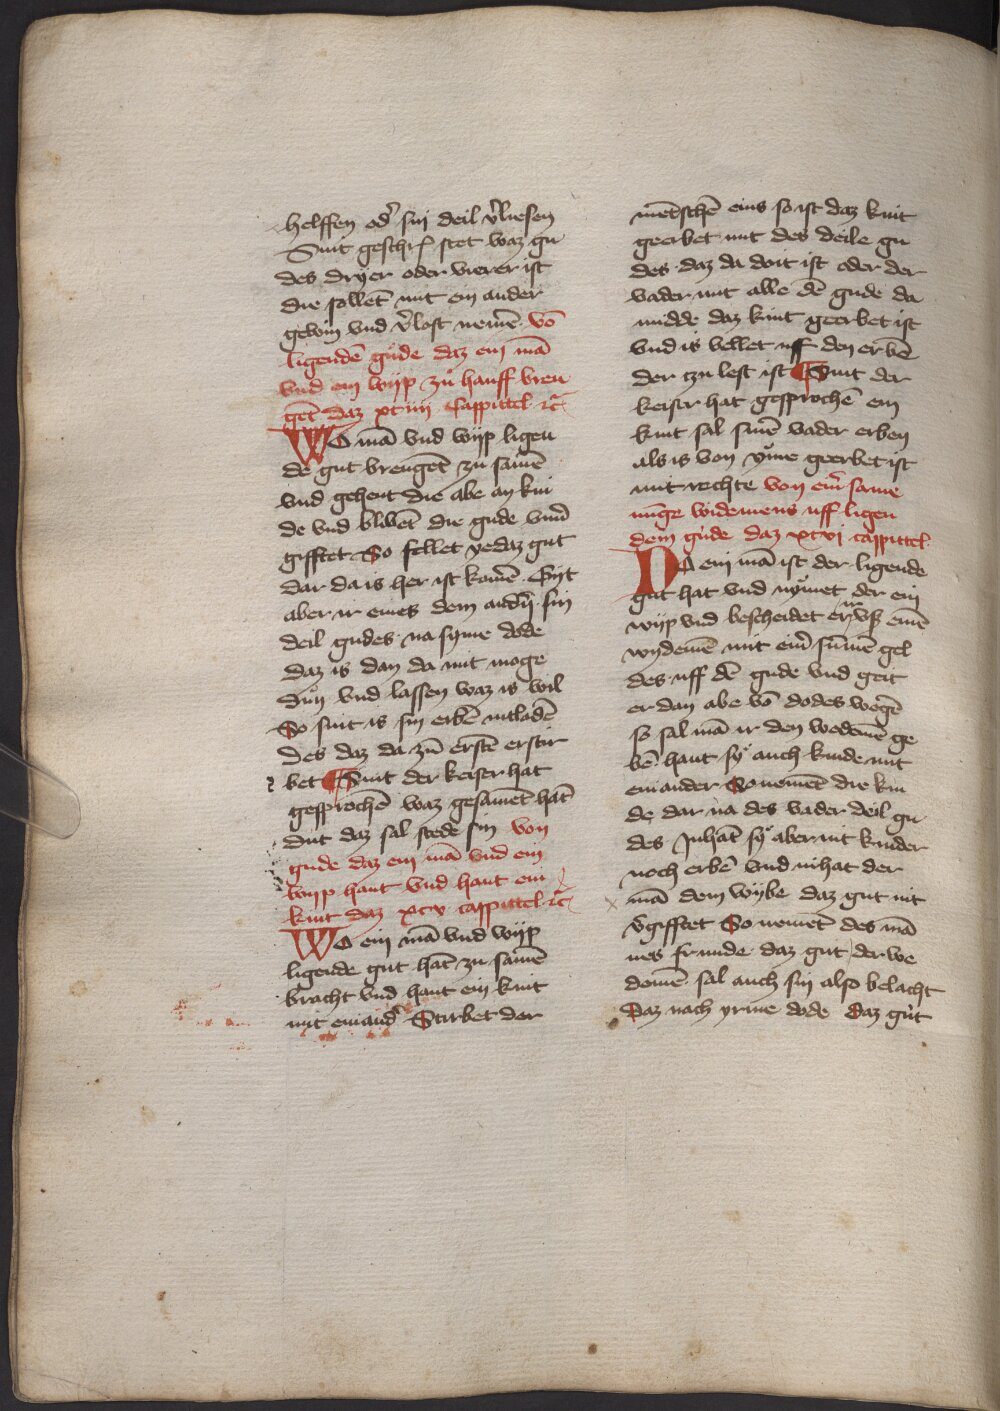 helffen od̾ sin deil v̾liesen
Sint geschr̾ stet waz gu
des dryer oder vierer ist
die sollet̄ mit ein ander
gewin vnd v̾lost nemē vō
ligendē gude daz ein mā
vnd ein wijp zů hauff bren
get̄ daz xciiij Cappittel ꝛc̄
WO mā vnd wijp ligen
de gut brenget̄ zu samē
vnd gehent die abe an kin
de vnd blibet̄ die gude vnū
gifftet So fellet yedaz gut
dar da is her ist komē Git
aber ir eines dem andn̄ sin
deil gudes na syme dode
daz is dan da mit moge
důn vnd lassen waz is wil
So sint is sin erbē entladē
des daz da zū erstē erstir
bet ¶ Sint der keiser hat
gesprochē waz gesamet̄ hāt
dut daz sal stede sin von
gude daz ein mā vnd ein
wijp hant vnd hant ein
kint daz xcv cappittel ꝛc̄
WO ein mā vnd wijp
ligende gut hāt zu samē
bracht vnd hant ein kint
mit einand̾ Stirbet der
mētschē eins so ist daz kint
geerbet mit des deile gu
des daz da doit ist oder der
vader mit alle dē gude da
midde daz kint geerbet ist
vnd is vellet uff den erbē
der czu lest ist ¶ Sint der
keiser hat gesprochē ein
kint sal sinē vader erben
als is von yme geerbet ist
mit rechte von em̄ same
nūge widemens uff ligen
dem gude daz xcvi cappittel
DO ein mā ist der ligende
gut hat vnd nymet der ein
wijp vnd bescheidet er ir vß einē
wydemē mit eim̄ sūmē gel
des uff dē gude vnd geit
er dan abe vō dodes wegē
so sal mā ir den wedemē ge
bē hant sy auch kinde mit
einander So nemēt die kin
de dar na des vader deil gu
des Inhāt sy aber nit kinder
noch erbē vnd nihat der
mā dem wybe daz gut nit
v̾gifftet So nemet̄ des mā
nes frunde daz gut der we
demē sal auch sin also belacht
Daz nach yrme dode Daz gut